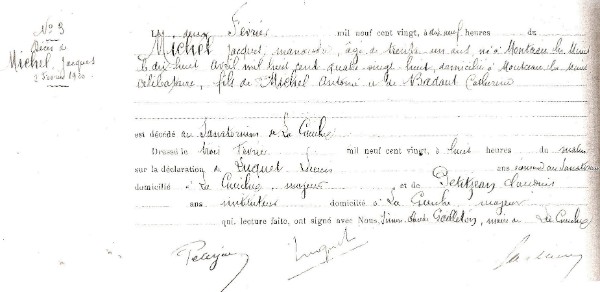 N° 3
Décès de
Michel, Jacques
2 Février 1920
Le deux Février mil neuf cent vingt, à dix neuf heures du
Michel Jacques, manœuvre âgé de trente un ans, né à Montceau les Mines
le huit Avril mil huit cent quatre vingt huit domicilié à Montceau les Mines
célibataire, fils de Michel Antoine et de Badaut Catherine
est décédé au Sanatorium de La Guiche
Dressé le trois Février mil neuf cent vingt, à huit heures du matin
sur la déclaration de Duguet ans au Sanatorium
domicilié à La Guiche majeur et de Petitjean Claudius
ans instituteur domicilié à La Guiche majeur
qui, lecture faite, ont signé avec Nous, Claude maire de La Guiche
Petitjean Duguet